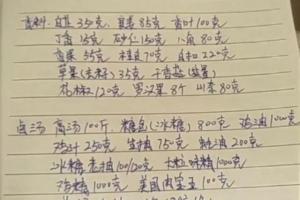 香料: 白芷350克 良姜85克 香叶100克
丁香15克 砂仁150克 八角80克
香果55克 桂皮70克 白扣220克
草果(去籽)35克 干香菇(适量)
花椒120克 罗汉果8个 山柰80克
卤汤 高汤100斤. 糖色(冰糖)800克 鸡油1000克
鸡汁250克 生抽750克 蚝油200克
冰糖 老抽100/20克 大粒味精1000克
鸡精1000克 美国肉宝王100克